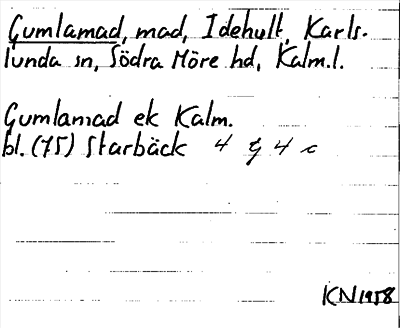 Gumlamad, mad, Idehult, Karls-
lunda sn, Södra Möre hd, Kalm.l.
Gumlamad ek Kalm.
bl. (75) Starbäck 4 G 4 c
KN1958